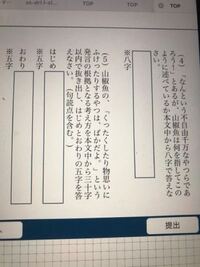 (4)「なんという不自由千万なやつらであ
ろう！」とあるが、山椒魚は何を指してこの
ように述べているか本文中から八字で答えな
さい。
※八字
(5)山椒魚の、「くったくしたり物思いに
ふけったりするやつは、ばかだよ。」という
発言の根拠となる考え方を本文中から三十字
以内で抜き出し、はじめとおわりの五字を答
えなさい。(句読点を含む。)
はじめ
※五字
おわり
※五字
提出